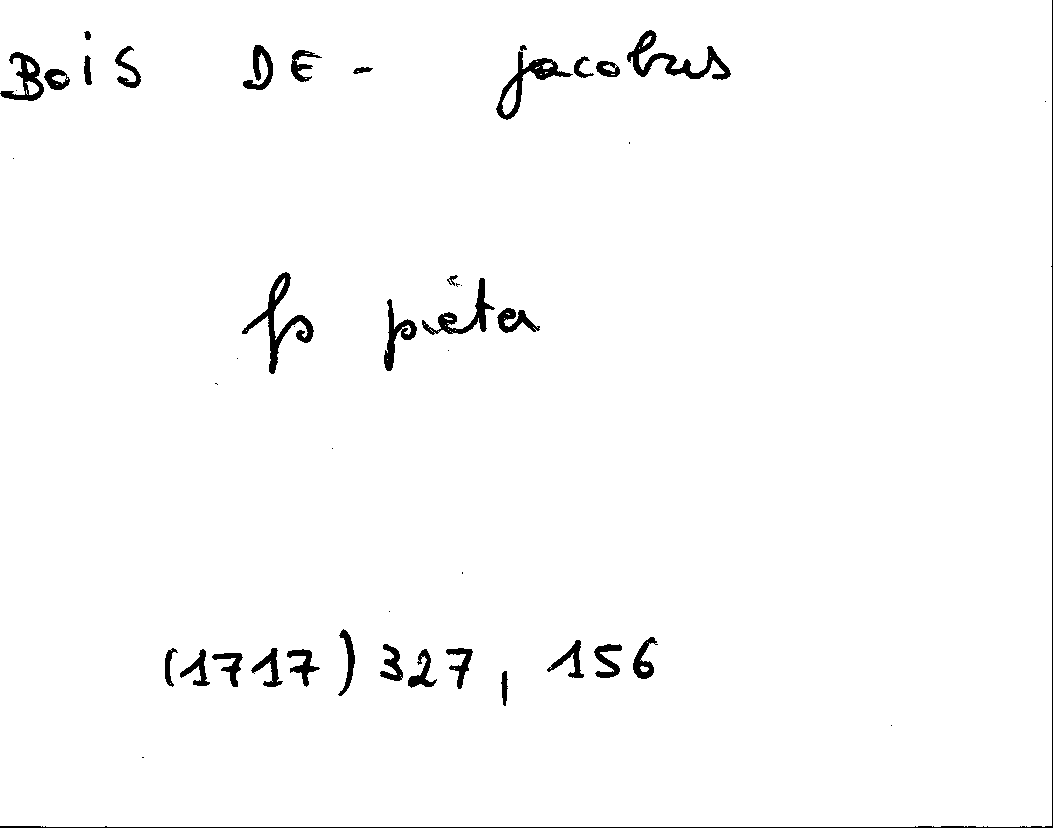 BOIS DE - jacobus
fs piéter
(1717) 327, 156